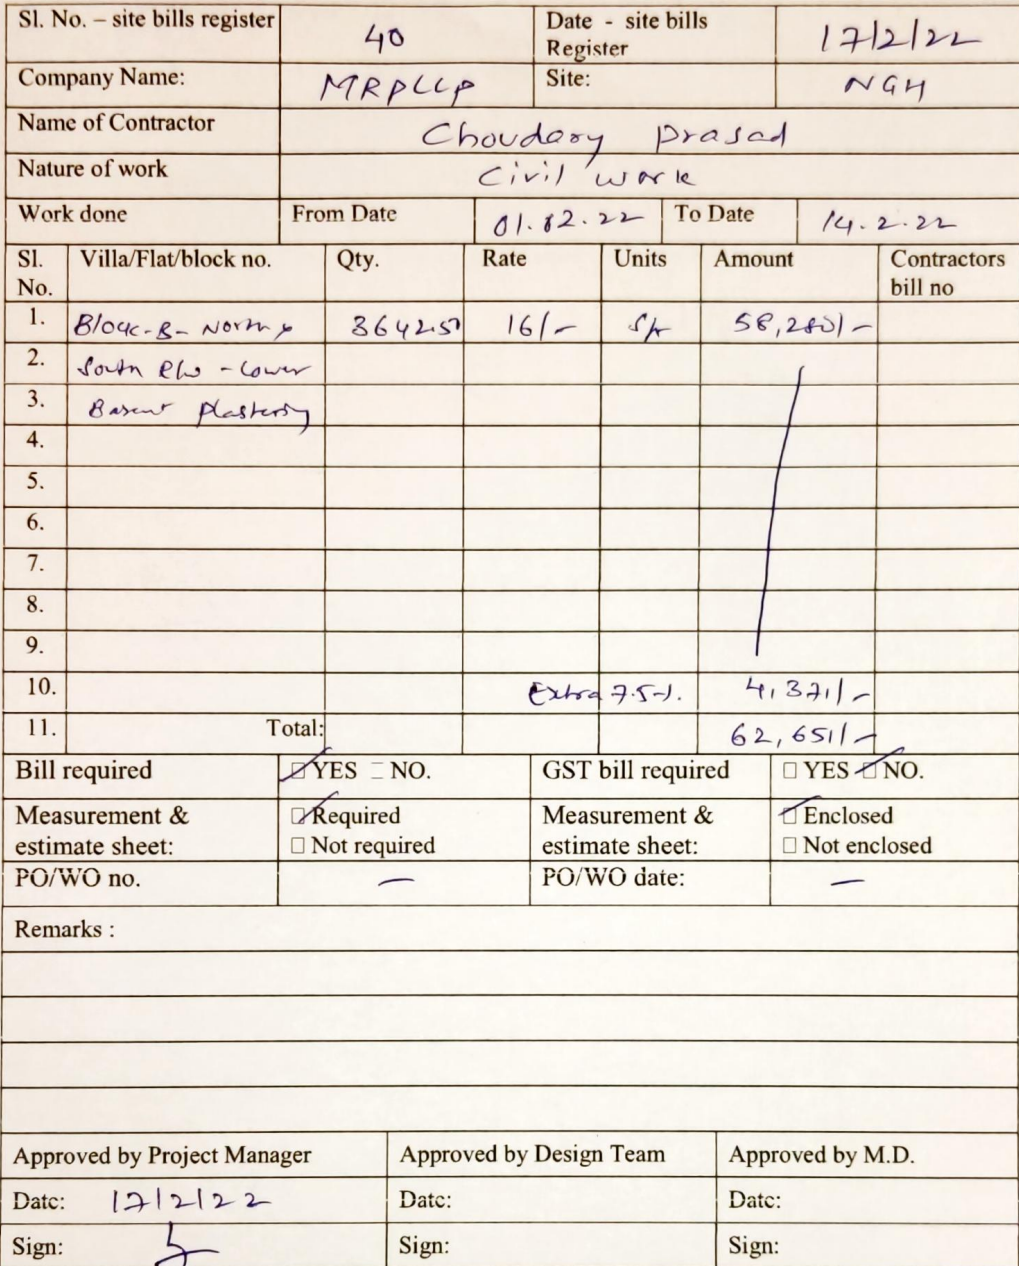 Sl. No. – site bills register 40 Date - site bills Register 17/2/22
Company Name: MRPLLP Site: NGH
Name of Contractor Choudary Prasad
Nature of work Civil work
Work done From Date 01.02.22 To Date 14.2.22
Sl. No. Villa/Flat/block no. Qty. Rate Units Amount Contractors bill no
1. Block-B- North & 3642.50 16/- 58,280/-
2. South - Lower
3. Plastering
4.
5.
6.
7.
8.
9.
10. Extra 7.5-/. 4,371/-
11. Total: 62,651/-
Bill required YES NO. GST bill required YES NO.
Measurement & estimate sheet: Required Measurement & estimate sheet: Enclosed
Not required Not enclosed
PO/WO no. — PO/WO date: —
Remarks :
Approved by Project Manager Approved by Design Team Approved by M.D.
Date: 17/2/22 Date: Date:
Sign: Sign: Sign: